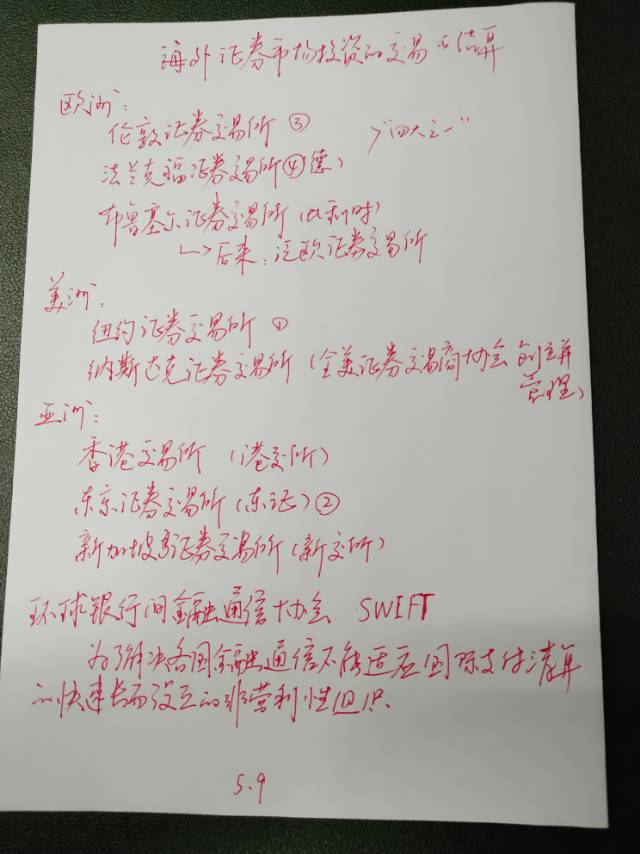 海外证券市场投资的交易与结算
欧洲:
伦敦证券交易所 ③ >"四大之一"
法兰克福证券交易所④(德)
布鲁塞尔证券交易所(比利时)
↳后来:泛欧证券交易所
美洲:
纽约证券交易所 ①
纳斯达克证券交易所(全美证券交易商协会 创立并
管理)
亚洲:
香港交易所 (港交所)
东京证券交易所(东证)②
新加坡证券交易所(新交所)
环球银行间金融通信协会 SWIFT
为了解决各国金融通信不能适应国际支付清算
的快速长而设立的非营利性组织.
5.9